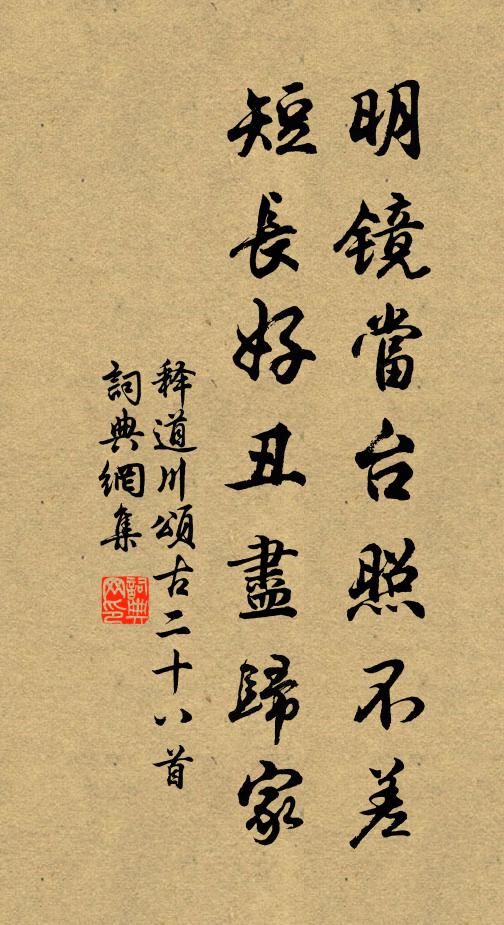 明镜當台照不差
短長好丑盡歸家
释道川頌古二十八首
詞典網集
詞典
网印